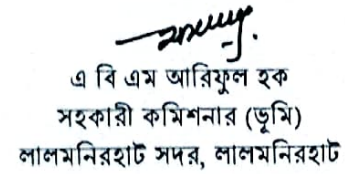 এ বি এম আরিফুল হক
সহকারী কমিশনার (ভূমি)
লালমনিরহাট সদর, লালমনিরহাট